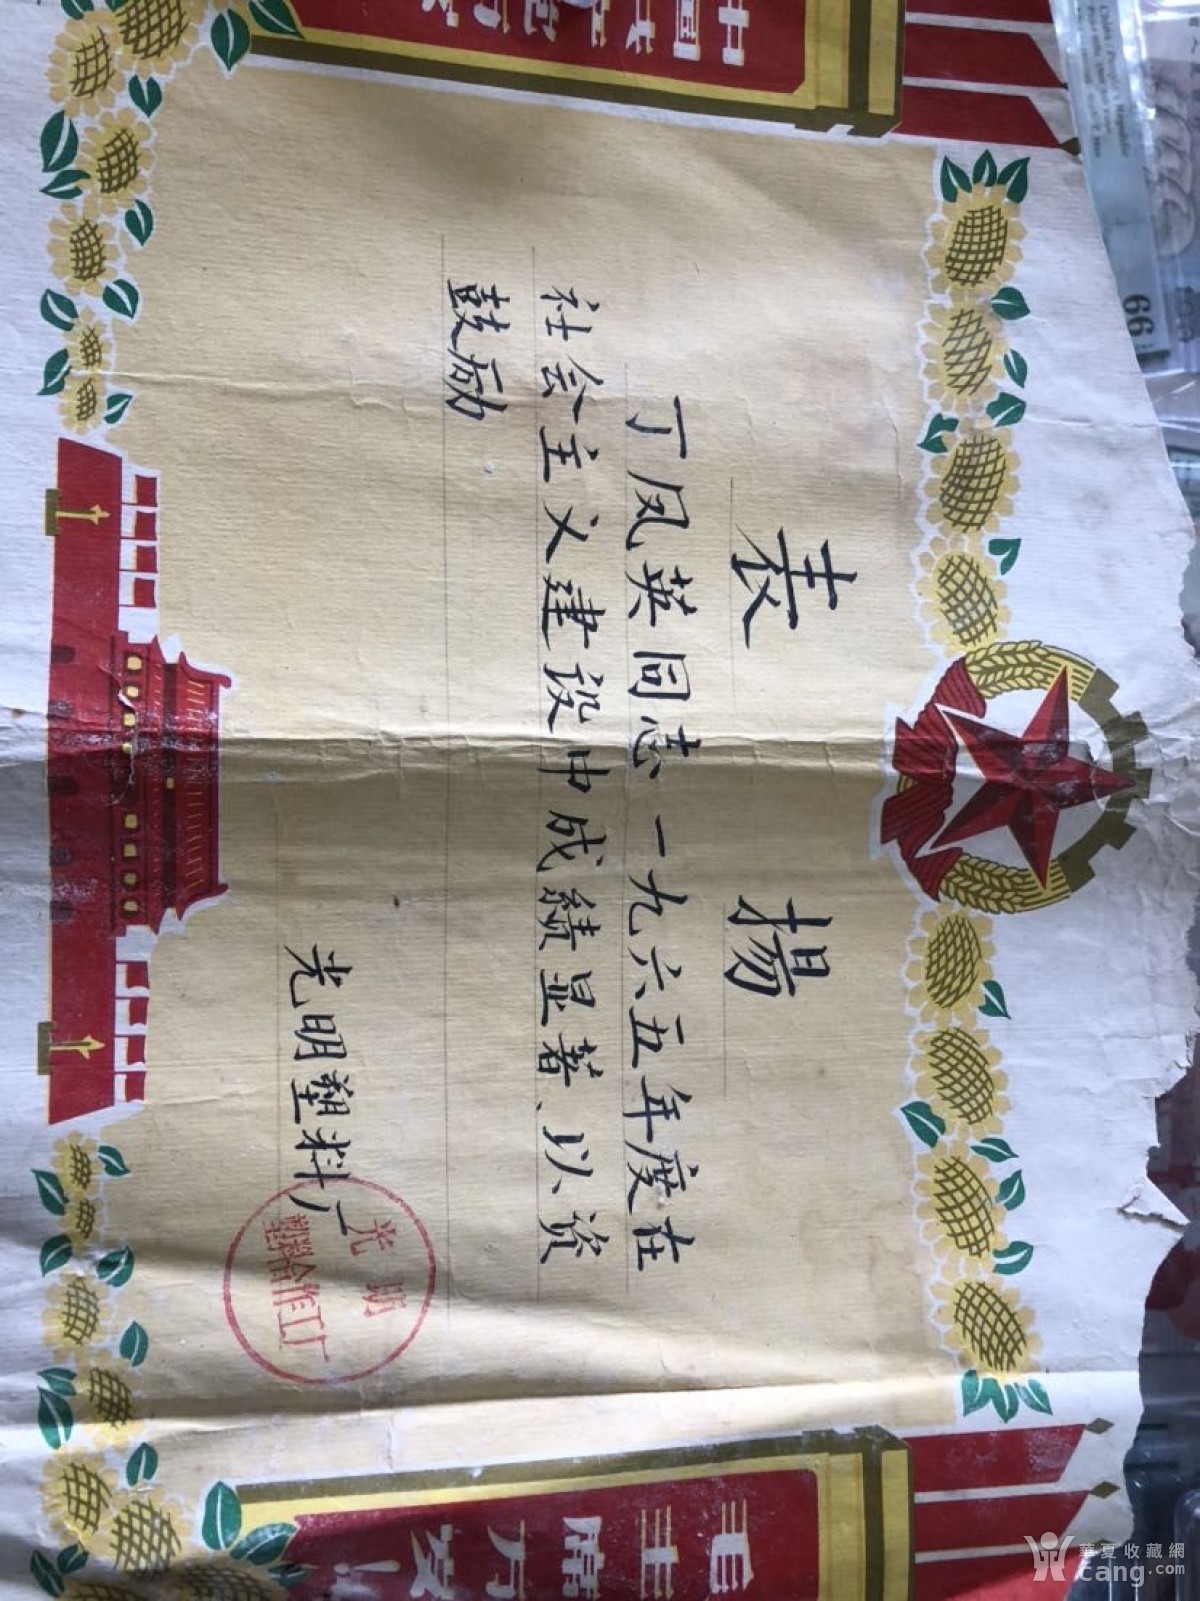 中国共产党万岁
表 揚
丁凤英同志一九六五年度在
社会主义建设中成绩显著、以资
鼓励
光明塑料厂
光明
塑料合作工厂
毛主席万岁
66
華夏收藏網
cang.com